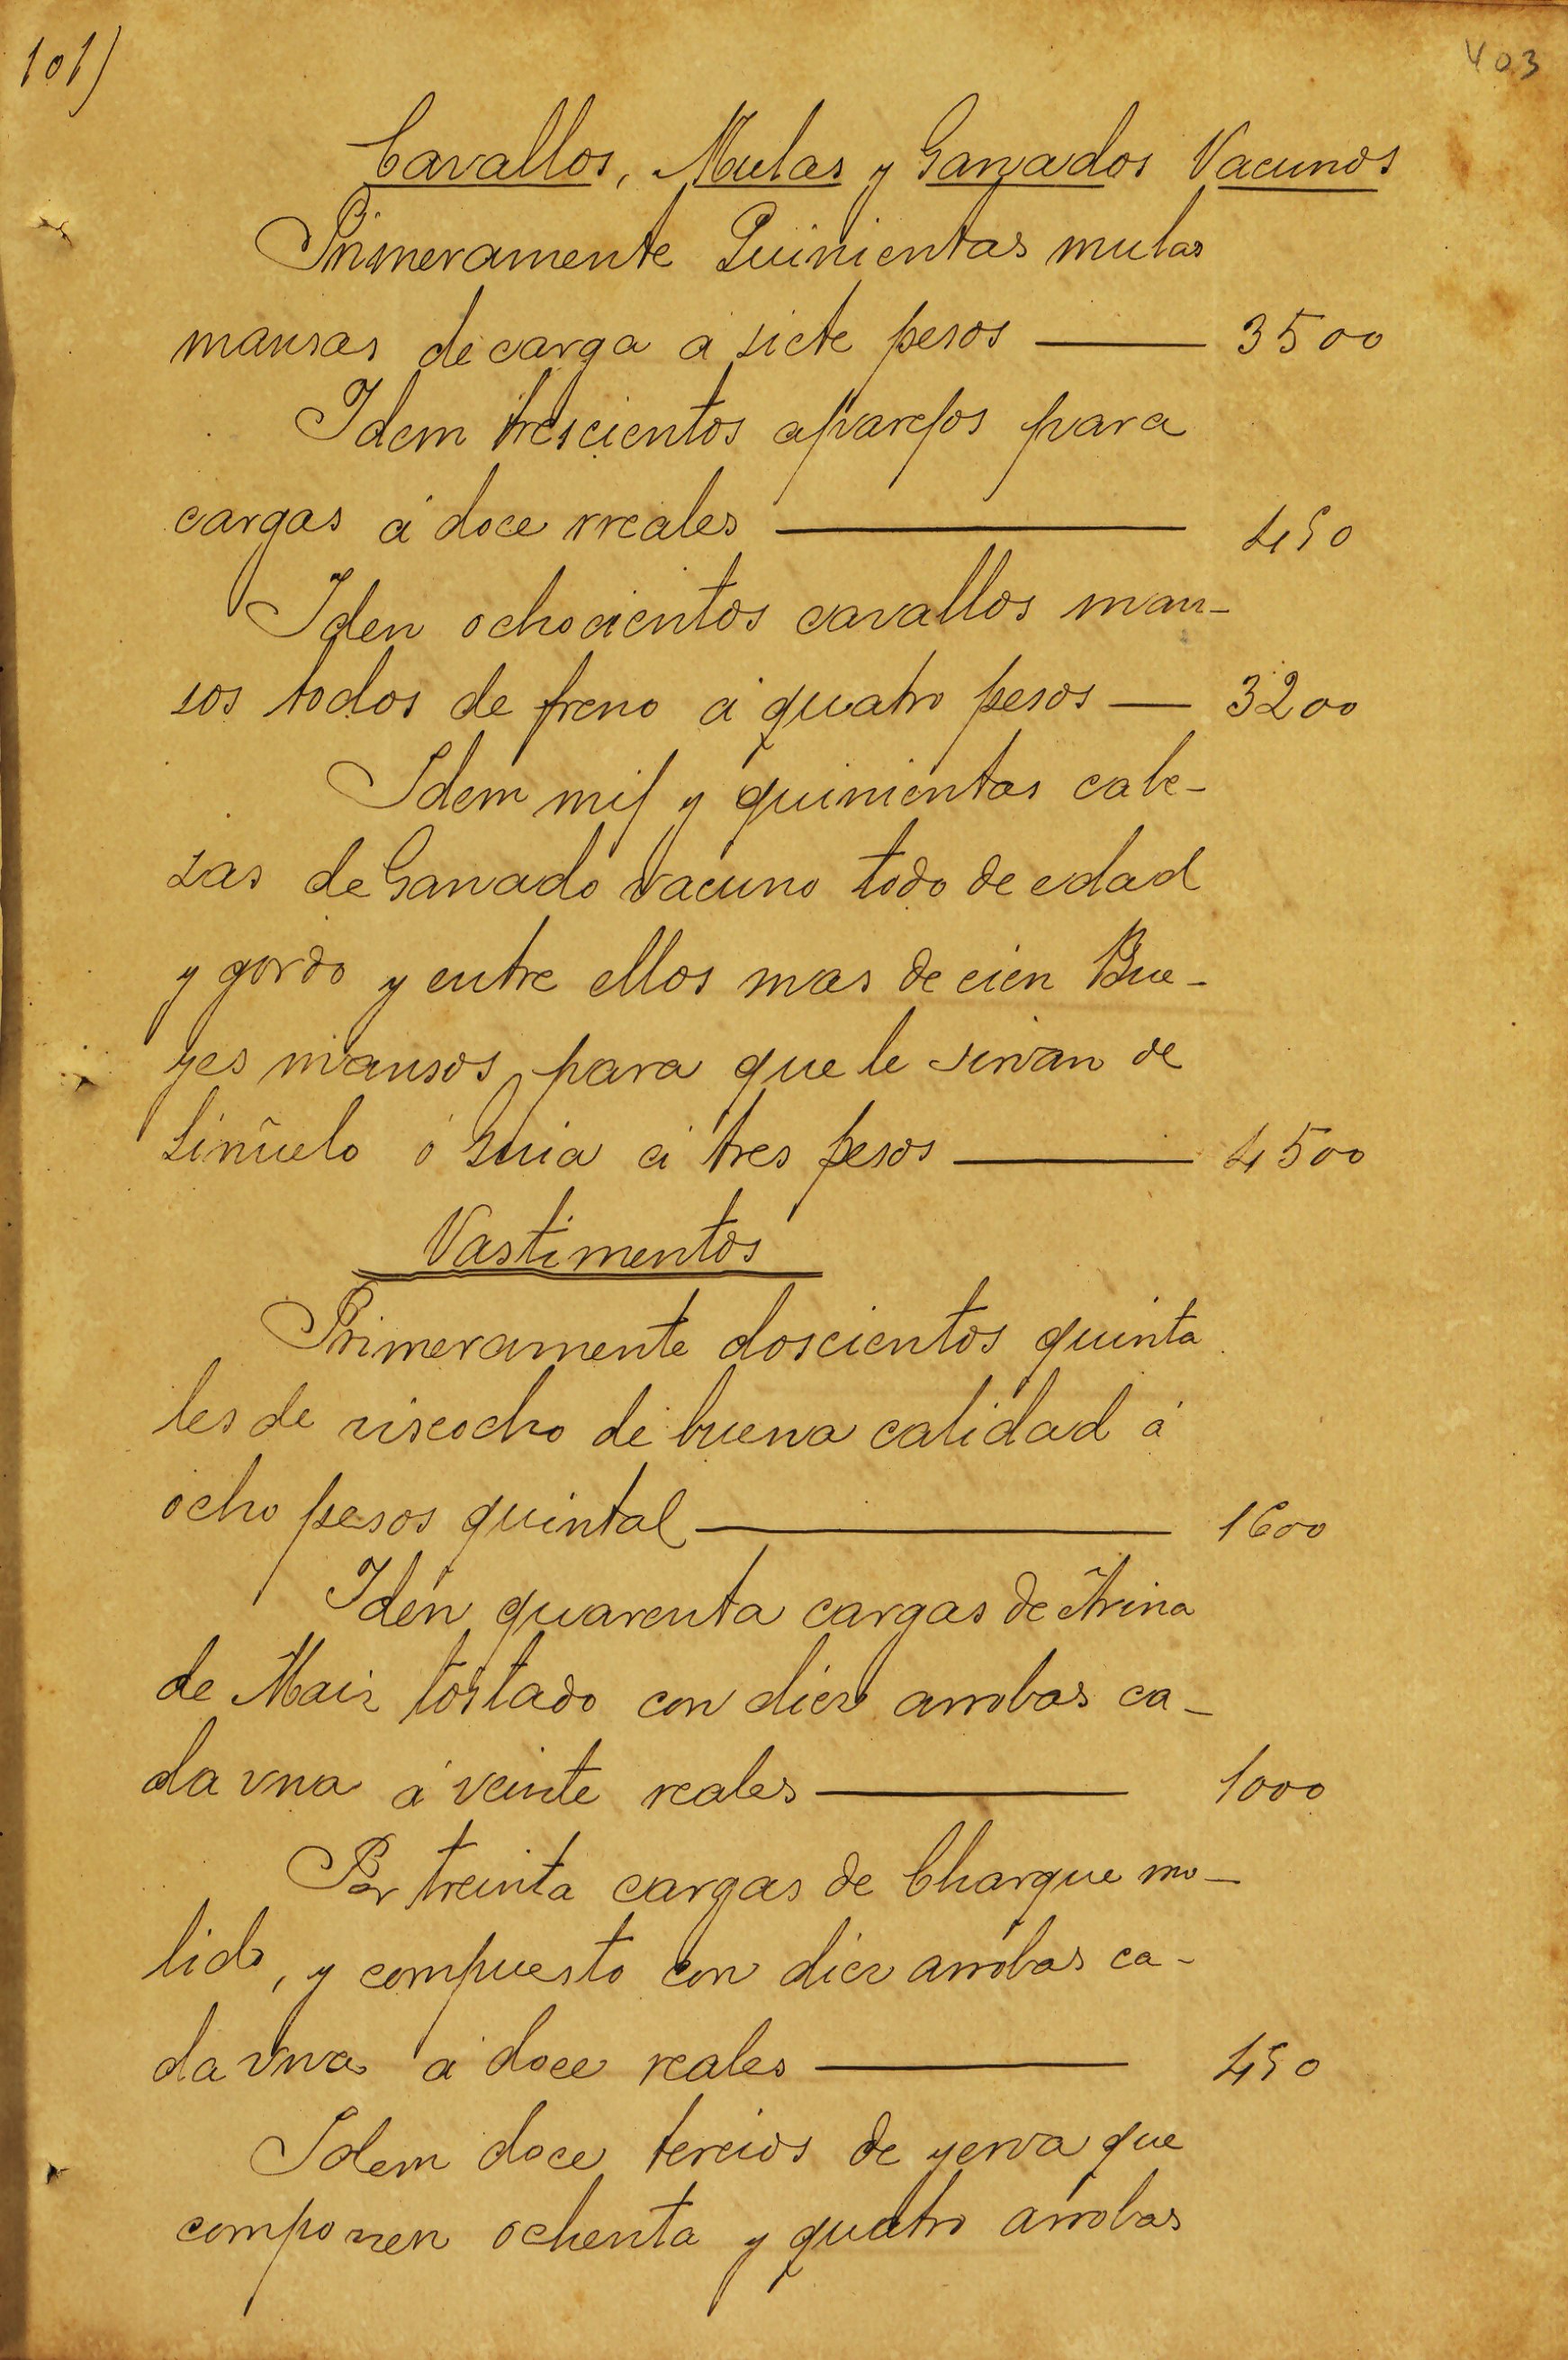 101)
403
Cavallos, Mulas y Ganados Vacunos
Primeramente Quinientas mulas
mansas de carga á siete pesos — 3500
Idem trescientos aparejos para
cargas á doce rreales — 450
Iden ochocientos cavallos man-
sos todos de freno á quatro pesos — 3200
Idem mil y quinientas cabe-
sas de Ganado vacuno todo de edad
y gordo y entre ellos mas de cien Bue-
yes mansos para que le sirvan de
Siñuelo ó Guia á tres pesos — 4500
Vastimentos
Primeramente doscientos quinta
les de viscocho de buena calidad á
ocho pesos quintal — 1600
Idén quarenta cargas de Arina
de Maiz tostado con diez arrobas ca-
da vna á veinte reales — 1000
Por treinta cargas de Charque mo-
lido, y compuesto con diez arrobas ca-
da vna á doce reales — 450
Idem doce tercios de yerva que
componen ochenta y quatro arrobas